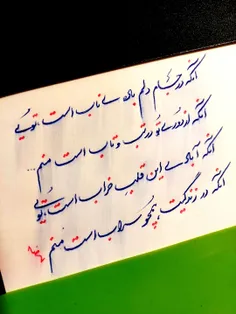 آنکه در جام دلم باده ی ناب است، تویی
آنکه از دوری تو در تب و تاب است منم...
آنکه آبادی این قلب خراب است، تویی
آنکه در زندگیت همچو سراب است منم